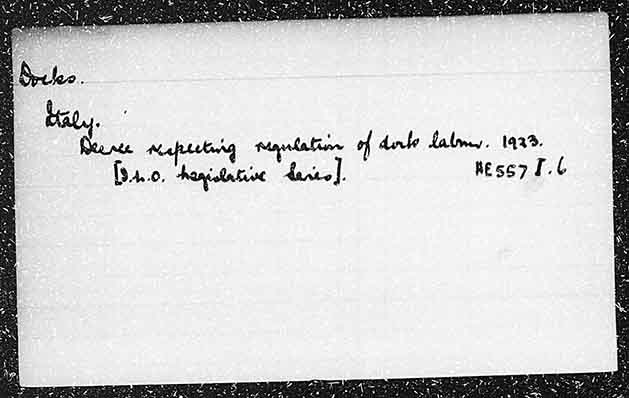 Docks.
Italy.
Decree respecting regulation of dock labour. 1923.
[I.L.O. Legislative Series]. HE557 I.6